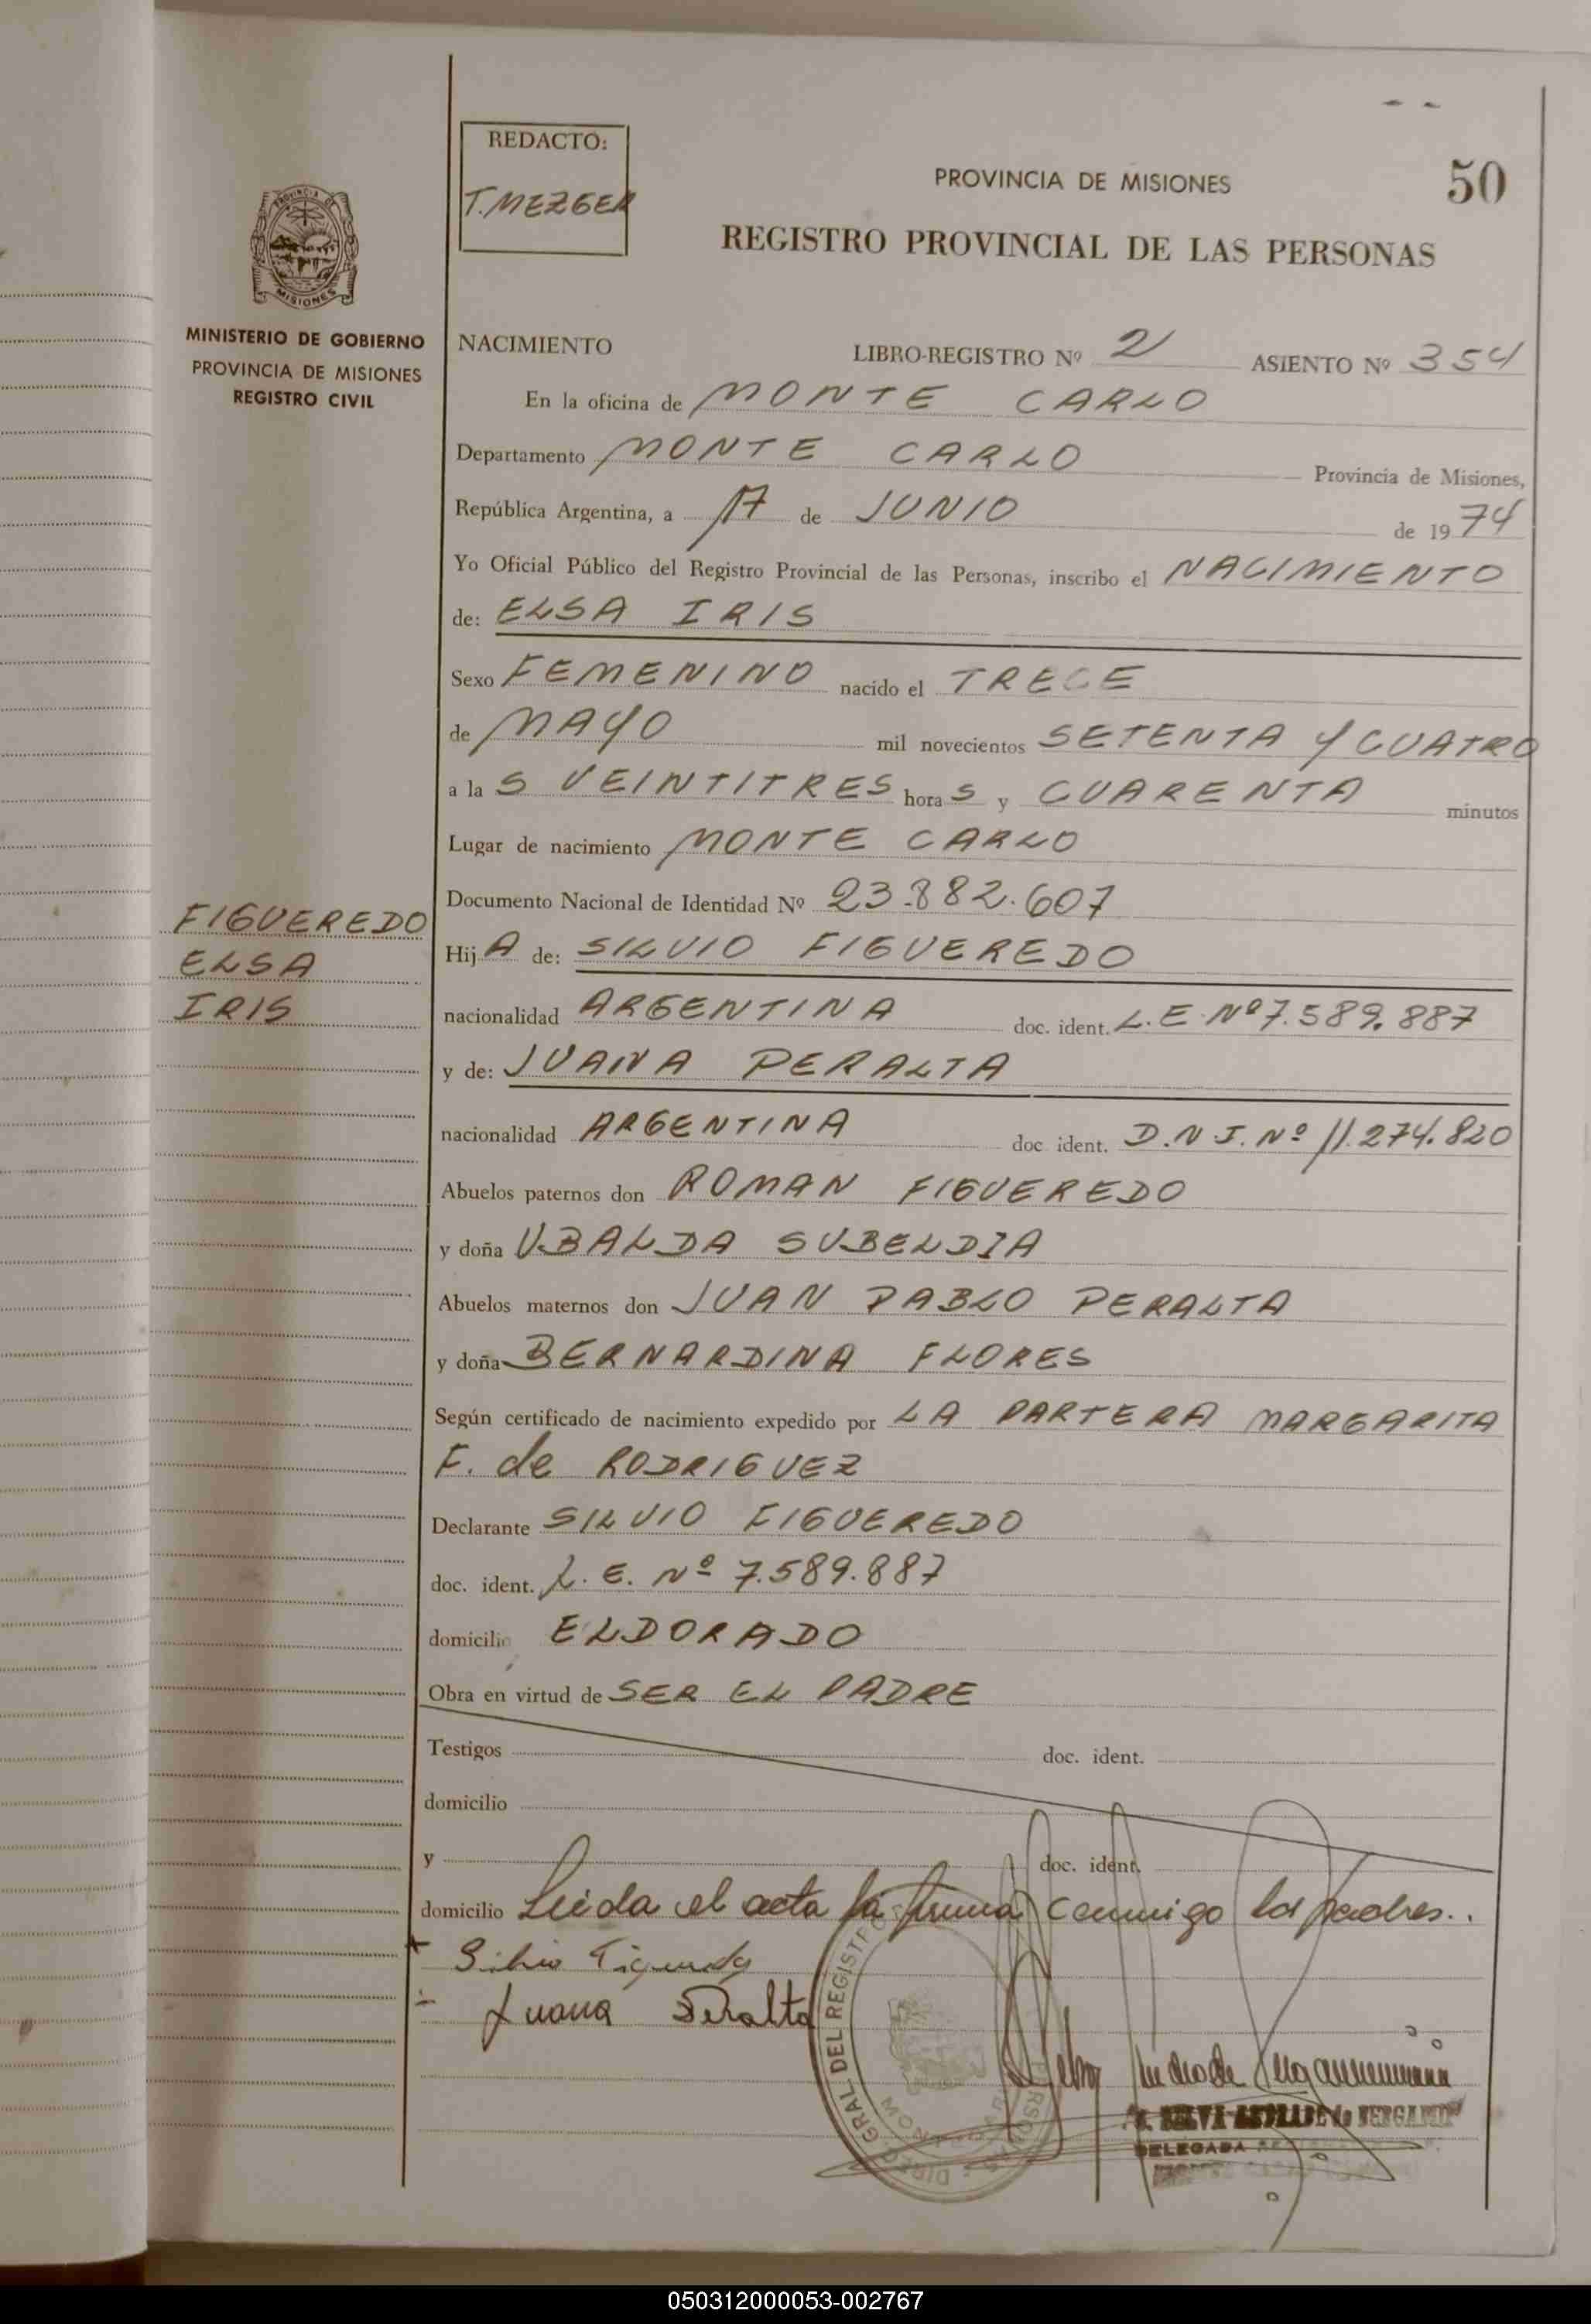 REDACTO:
T. MEZGER
PROVINCIA DE MISIONES
50
REGISTRO PROVINCIAL DE LAS PERSONAS
PROVINCIA DE
MISIONES
MINISTERIO DE GOBIERNO
PROVINCIA DE MISIONES
REGISTRO CIVIL
NACIMIENTO LIBRO-REGISTRO Nº 2 ASIENTO Nº 354
En la oficina de MONTE CARLO
Departamento MONTE CARLO Provincia de Misiones,
República Argentina, a 17 de JUNIO de 1974
Yo Oficial Público del Registro Provincial de las Personas, inscribo el NACIMIENTO
de: ELSA IRIS
Sexo FEMENINO nacido el TRECE
de MAYO mil novecientos SETENTA Y CUATRO
a la S VEINTITRES hora S y CUARENTA minutos
Lugar de nacimiento MONTE CARLO
Documento Nacional de Identidad Nº 23.882.607
FIGUEREDO
ELSA
IRIS
Hij A de: SILVIO FIGUEREDO
nacionalidad ARGENTINA doc. ident. L.E Nº 7.589.887
y de: JUANA PERALTA
nacionalidad ARGENTINA doc ident. D.N.I. Nº 11.274.820
Abuelos paternos don ROMAN FIGUEREDO
y doña UBALDA SUBELDIA
Abuelos maternos don JUAN PABLO PERALTA
y doña BERNARDINA FLORES
Según certificado de nacimiento expedido por LA PARTERA MARGARITA
F. de RODRIGUEZ
Declarante SILVIO FIGUEREDO
doc. ident. L.E. Nº 7.589.887
domicilio ELDORADO
Obra en virtud de SER EL PADRE
Testigos doc. ident.
domicilio
y doc. ident.
domicilio Leida el acta la firma conmigo los padres..
Silvio Figueredo
Juana Peralta
GRAL DEL REGISTRO
DELEGADA
050312000053-002767